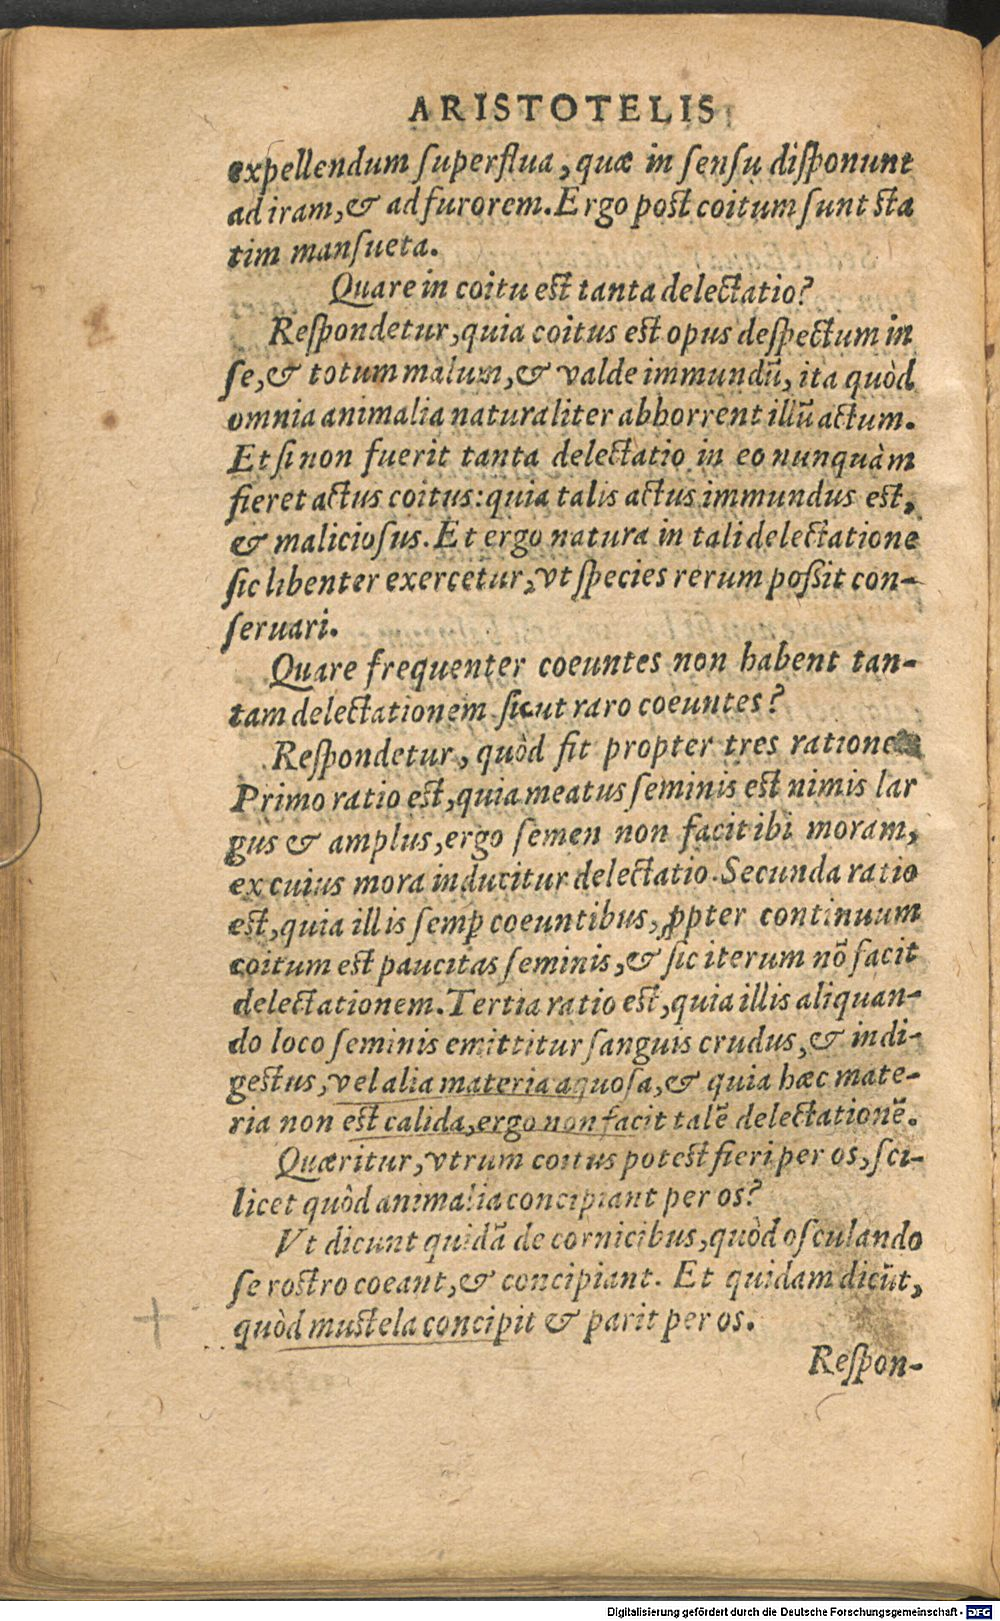 ARISTOTELIS
expellendum superflua, quæ in sensu disponunt
ad iram, & ad furorem. Ergo post coitum sunt sta
tim mansueta.
Quare in coitu est tanta delectatio?
Respondetur, quia coitus est opus despectum in
se, & totum malum, & valde immundū, ita quòd
omnia animalia naturaliter abhorrent illū actum.
Et si non fuerit tanta delectatio in eo nunquàm
fieret actus coitus: quia talis actus immundus est,
& maliciosus. Et ergo natura in tali delectatione
sic libenter exercetur, vt species rerum possit con-
seruari.
Quare frequenter coeuntes non habent tan-
tam delectationem sicut raro coeuntes?
Respondetur, quòd fit propter tres ratione
Primo ratio est, quia meatus seminis est nimis lar
gus & amplus, ergo semen non facit ibi moram,
ex cuius mora inducitur delectatio. Secunda ratio
est, quia illis semꝑ coeuntibus, ꝓpter continuum
coitum est paucitas seminis, & sic iterum nō facit
delectationem. Tertia ratio est, quia illis aliquan-
do loco seminis emittitur sanguis crudus, & indi-
gestus, vel alia materia aquosa, & quia hæc mate-
ria non est calida, ergo non facit talē delectationē.
Quæritur, vtrum coitus potest fieri per os, sci-
licet quòd animalia concipiant per os?
Vt dicunt quidā de cornicibus, quòd osculando
se rostro coeant, & concipiant. Et quidam dicūt,
quòd mustela concipit & parit per os.
Respon-
Digitalisierung gefördert durch die Deutsche Forschungsgemeinschaft - DFG